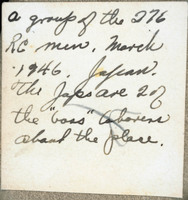 a group of the 276
RC men. March
1946. Japan.
The Japs are 2 of
the "boss" laborers
about the place.